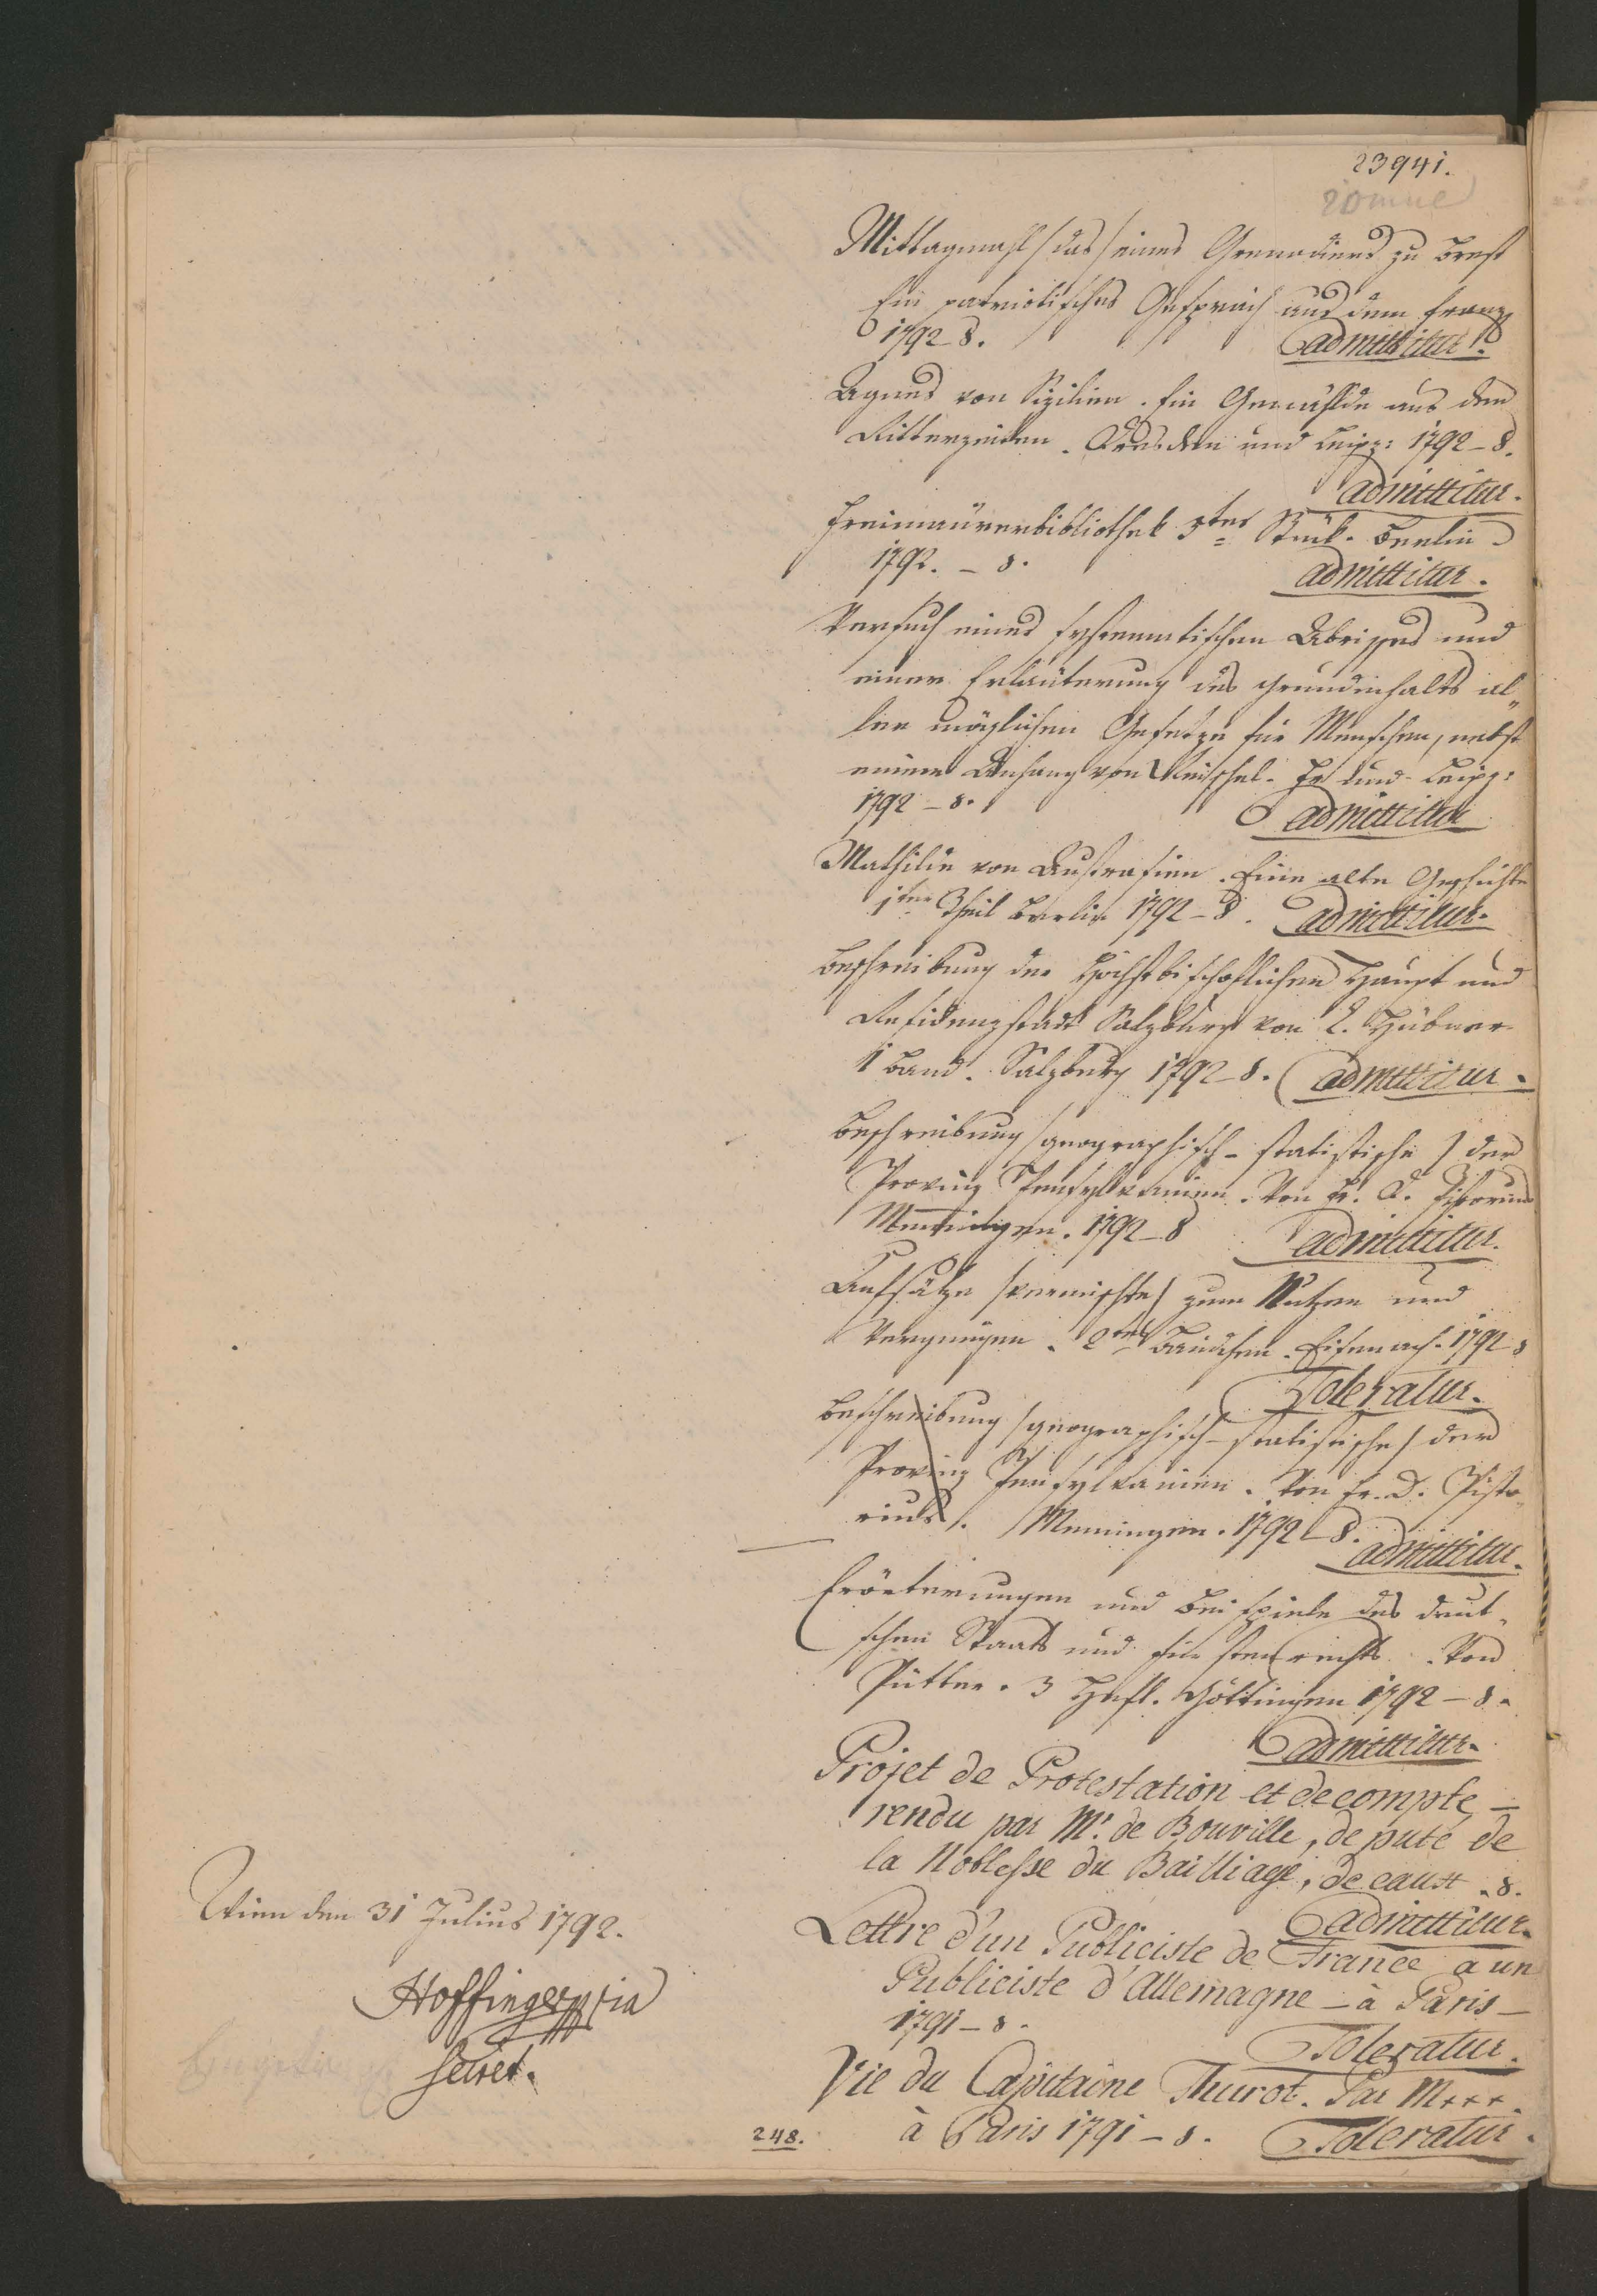 23941.
Mittagmahl (das) eines Grenadiers zu Brest
Ein patriotisches Gespräch aus dem Franz
1792 8. admittitur.
Agnes von Sizilien. Ein Gemählde aus den
Ritterzeiten. Dresden und Leipz: 1792 – 8.
admittitur.
Freimaurerbibliothek 5tes Stük. Berlin
1792. – 8. admittitur.
Versuch eines systematischen Abrisses und
einer Erläuterung des Grundinhalts al„
ler möglichen Gesetze für Menschen, nebst
einem Anhang von Leipz:
1792 – 8. admittitur
Mathilde von Austrasien. Eine alte Geschichte
1ter Theil Berlin 1792 – 8. admittitur.
Beschreibung der Hochfürstbischoflichen Haupt und
Residenzstadt Salzburg von L. Hübner
1 Band. Salzburg 1792 – 8. admittitur.
Beschreibung (geographisch-statistische) der
Provinz Pensylvanien. Von Fr. D. Pistorius
Meiningen. 1792 – 8 admittitur.
Aufsätze (vermischte) zum Nutzen und
Vergnügen. 2tes Bändchen. Eisenach. 1792 8
Toleratur.
Beschreibung (geographisch-statistische) der
Provinz Pensylvanien. Von Fr. D. Pisto„
rius. Meiningen. 1792 – 8.
admittitur.
Erörterungen und Beispiele des deut„
schen Staats und Fürstenrechts. Von
Pütter. 3 Heft. Göttingen 1792 – 8.
admittitur.
Projet de Protestation et de compte –
rendu par Mr. de Bouville, depute de
la Noblesse du Bailliage, de caux. 8.
admittitur.
Lettre d'un Publiciste de France a un
Publiciste d'Allemagne – à Paris –
1791 – 8.
Toleratur.
Vie du Capitaine Thurot. Par M+++.
à Paris 1791 – 8. Toleratur.
Wien den 31 Julius 1792.
Hoffinger mpria
Secret.
248.